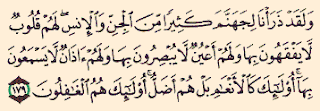 وَلَقَدْ ذَرَأْنَا لِجَهَنَّمَ كَثِيرًا مِّنَ ٱلْجِنِّ وَٱلْإِنسِ ۖ لَهُمْ قُلُوبٌ
لَّا يَفْقَهُونَ بِهَا وَلَهُمْ أَعْيُنٌ لَّا يُبْصِرُونَ بِهَا وَلَهُمْ ءَاذَانٌ لَّا يَسْمَعُونَ
بِهَآ ۚ أُو۟لَٰٓئِكَ كَٱلْأَنْعَٰمِ بَلْ هُمْ أَضَلُّ ۚ أُو۟لَٰٓئِكَ هُمُ ٱلْغَٰفِلُونَ ١٧٩